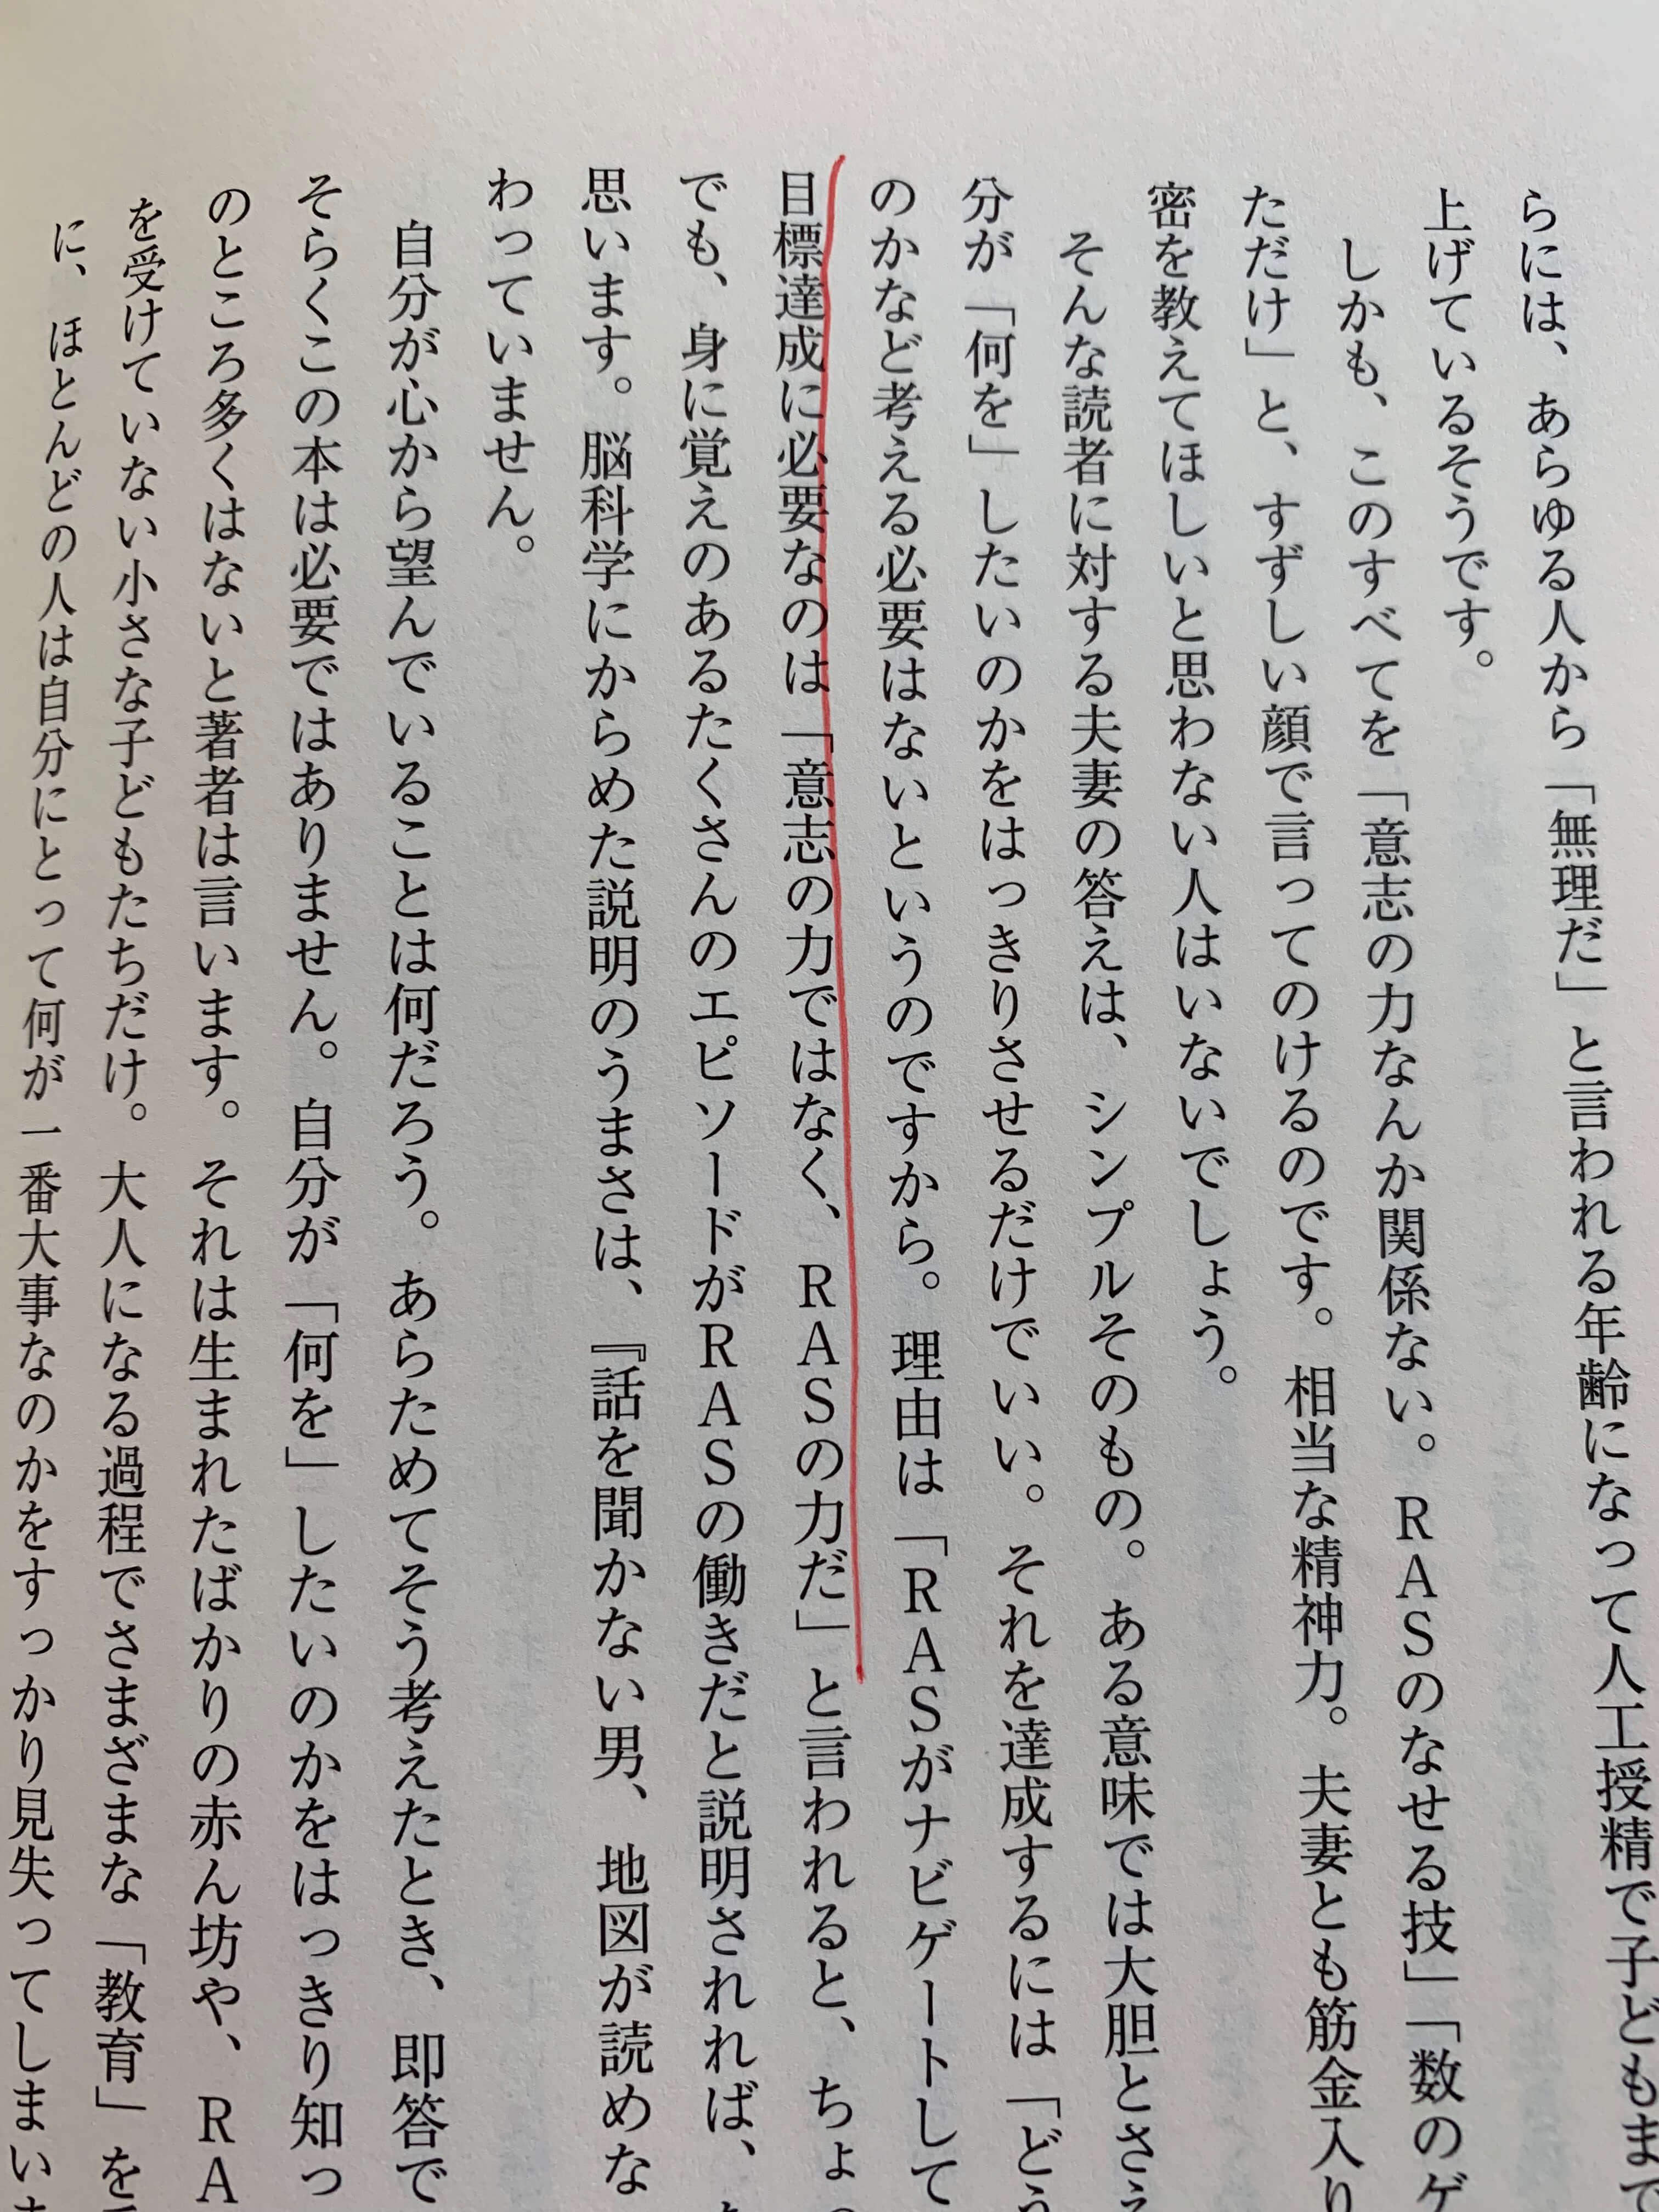 らには、あらゆる人から「無理だ」と言われる年齢になって人工授精で子どもまで
上げているそうです。
しかも、このすべてを「意志の力なんか関係ない。RASのなせる技」「数のゲ
ただけ」と、すずしい顔で言ってのけるのです。相当な精神力。夫妻とも筋金入り
密を教えてほしいと思わない人はいないでしょう。
そんな読者に対する夫妻の答えは、シンプルそのもの。ある意味では大胆とさえ
分が「何を」したいのかをはっきりさせるだけでいい。それを達成するには「どう
のかなど考える必要はないというのですから。理由は「RASがナビゲートして
目標達成に必要なのは「意志の力ではなく、RASの力だ」と言われると、ちょっ
でも、身に覚えのあるたくさんのエピソードがRASの働きだと説明されれば、
思います。脳科学にからめた説明のうまさは、『話を聞かない男、地図が読めな
わっていません。
自分が心から望んでいることは何だろう。あらためてそう考えたとき、即答で
そらくこの本は必要ではありません。自分が「何を」したいのかをはっきり知っ
のところ多くはないと著者は言います。それは生まれたばかりの赤ん坊や、RA
を受けていない小さな子どもたちだけ。大人になる過程でさまざまな「教育」を
に、ほとんどの人は自分にとって何が一番大事なのかをすっかり見失ってしまい